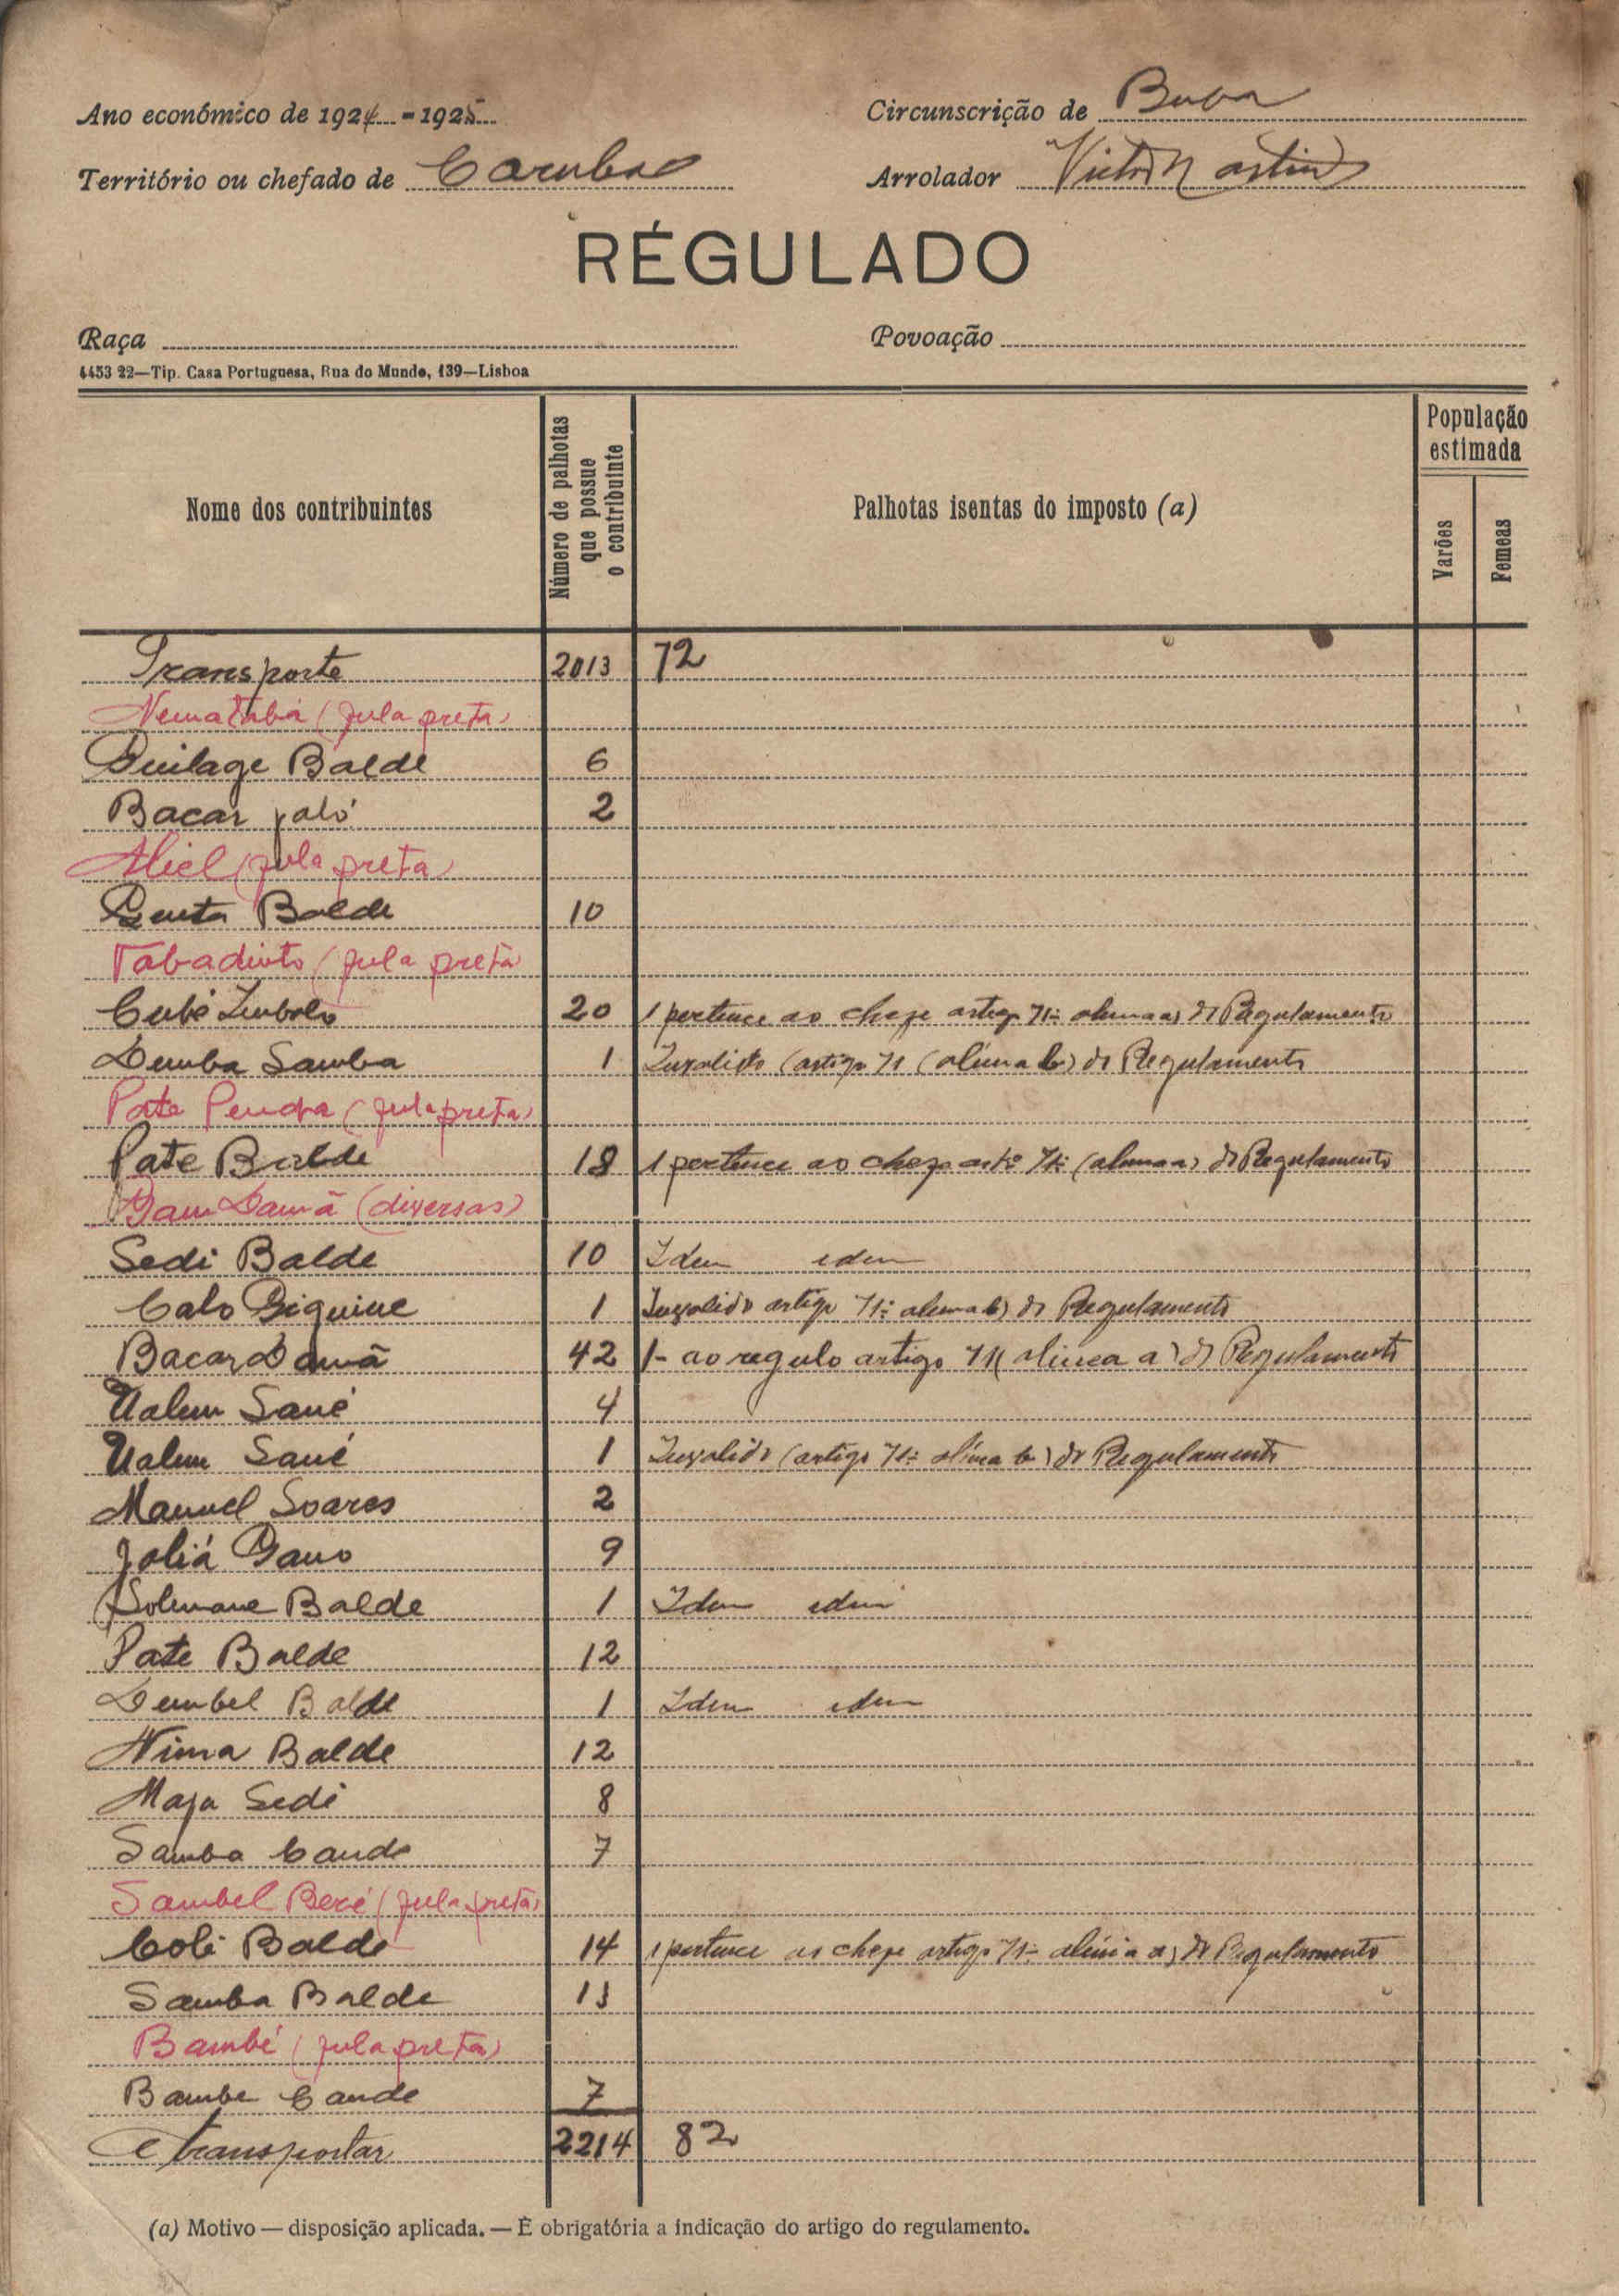 Ano económico de 1924 - 1925
Circunscrição de Buba
Território ou chefado de
Arrolador Victor Martins
RÉGULADO
Raça
Povoação
4453 22—Tip. Casa Portuguesa, Rua do Mundo, 139—Lisboa
Nome dos contribuintes
Número de palhotas que possue o contribuinte
Palhotas isentas do imposto (a)
População estimada
Varões
Femeas
Transporte 2013 72
Nematabá (fula preta)
Quilage Balde 6
Bacar jaló 2
(fula preta)
Balde 10
(fula preta)
20 1 pertence ao chefe artigo 71º alinea a) do Regulamento
Demba Samba 1 Invalido (artigo 71 (alinea b) do Regulamento
Pate Penda (fula preta)
Pate Balde 18 1 pertence ao chefe artº 71º (alinea a) do Regulamento
(diversas)
Sedi Balde 10 Idem idem
1 Invalido artigo 71º alinea b) do Regulamento
Bacar Damã 42 1- ao regulo artigo 71( alinea a) do Regulamento
Ualem Sané 4
Ualem Sané 1 Invalido (artigo 71º alinea b) do Regulamento
Manuel Soares 2
Joliá Gano 9
Solimane Balde 1 Idem idem
Pate Balde 12
Dembel Balde 1 Idem idem
Nima Balde 12
Maja Sedi 8
Samba Cande 7
Sambel (fula preta)
Coli Balde 14 1 pertence ao chefe artigo 71º alinea a) do Regulamento
Samba Balde 13
Bambé (fula preta)
Bambe Cande 7
A transportar 2214 82
(a) Motivo — disposição aplicada. — É obrigatória a indicação do artigo do regulamento.